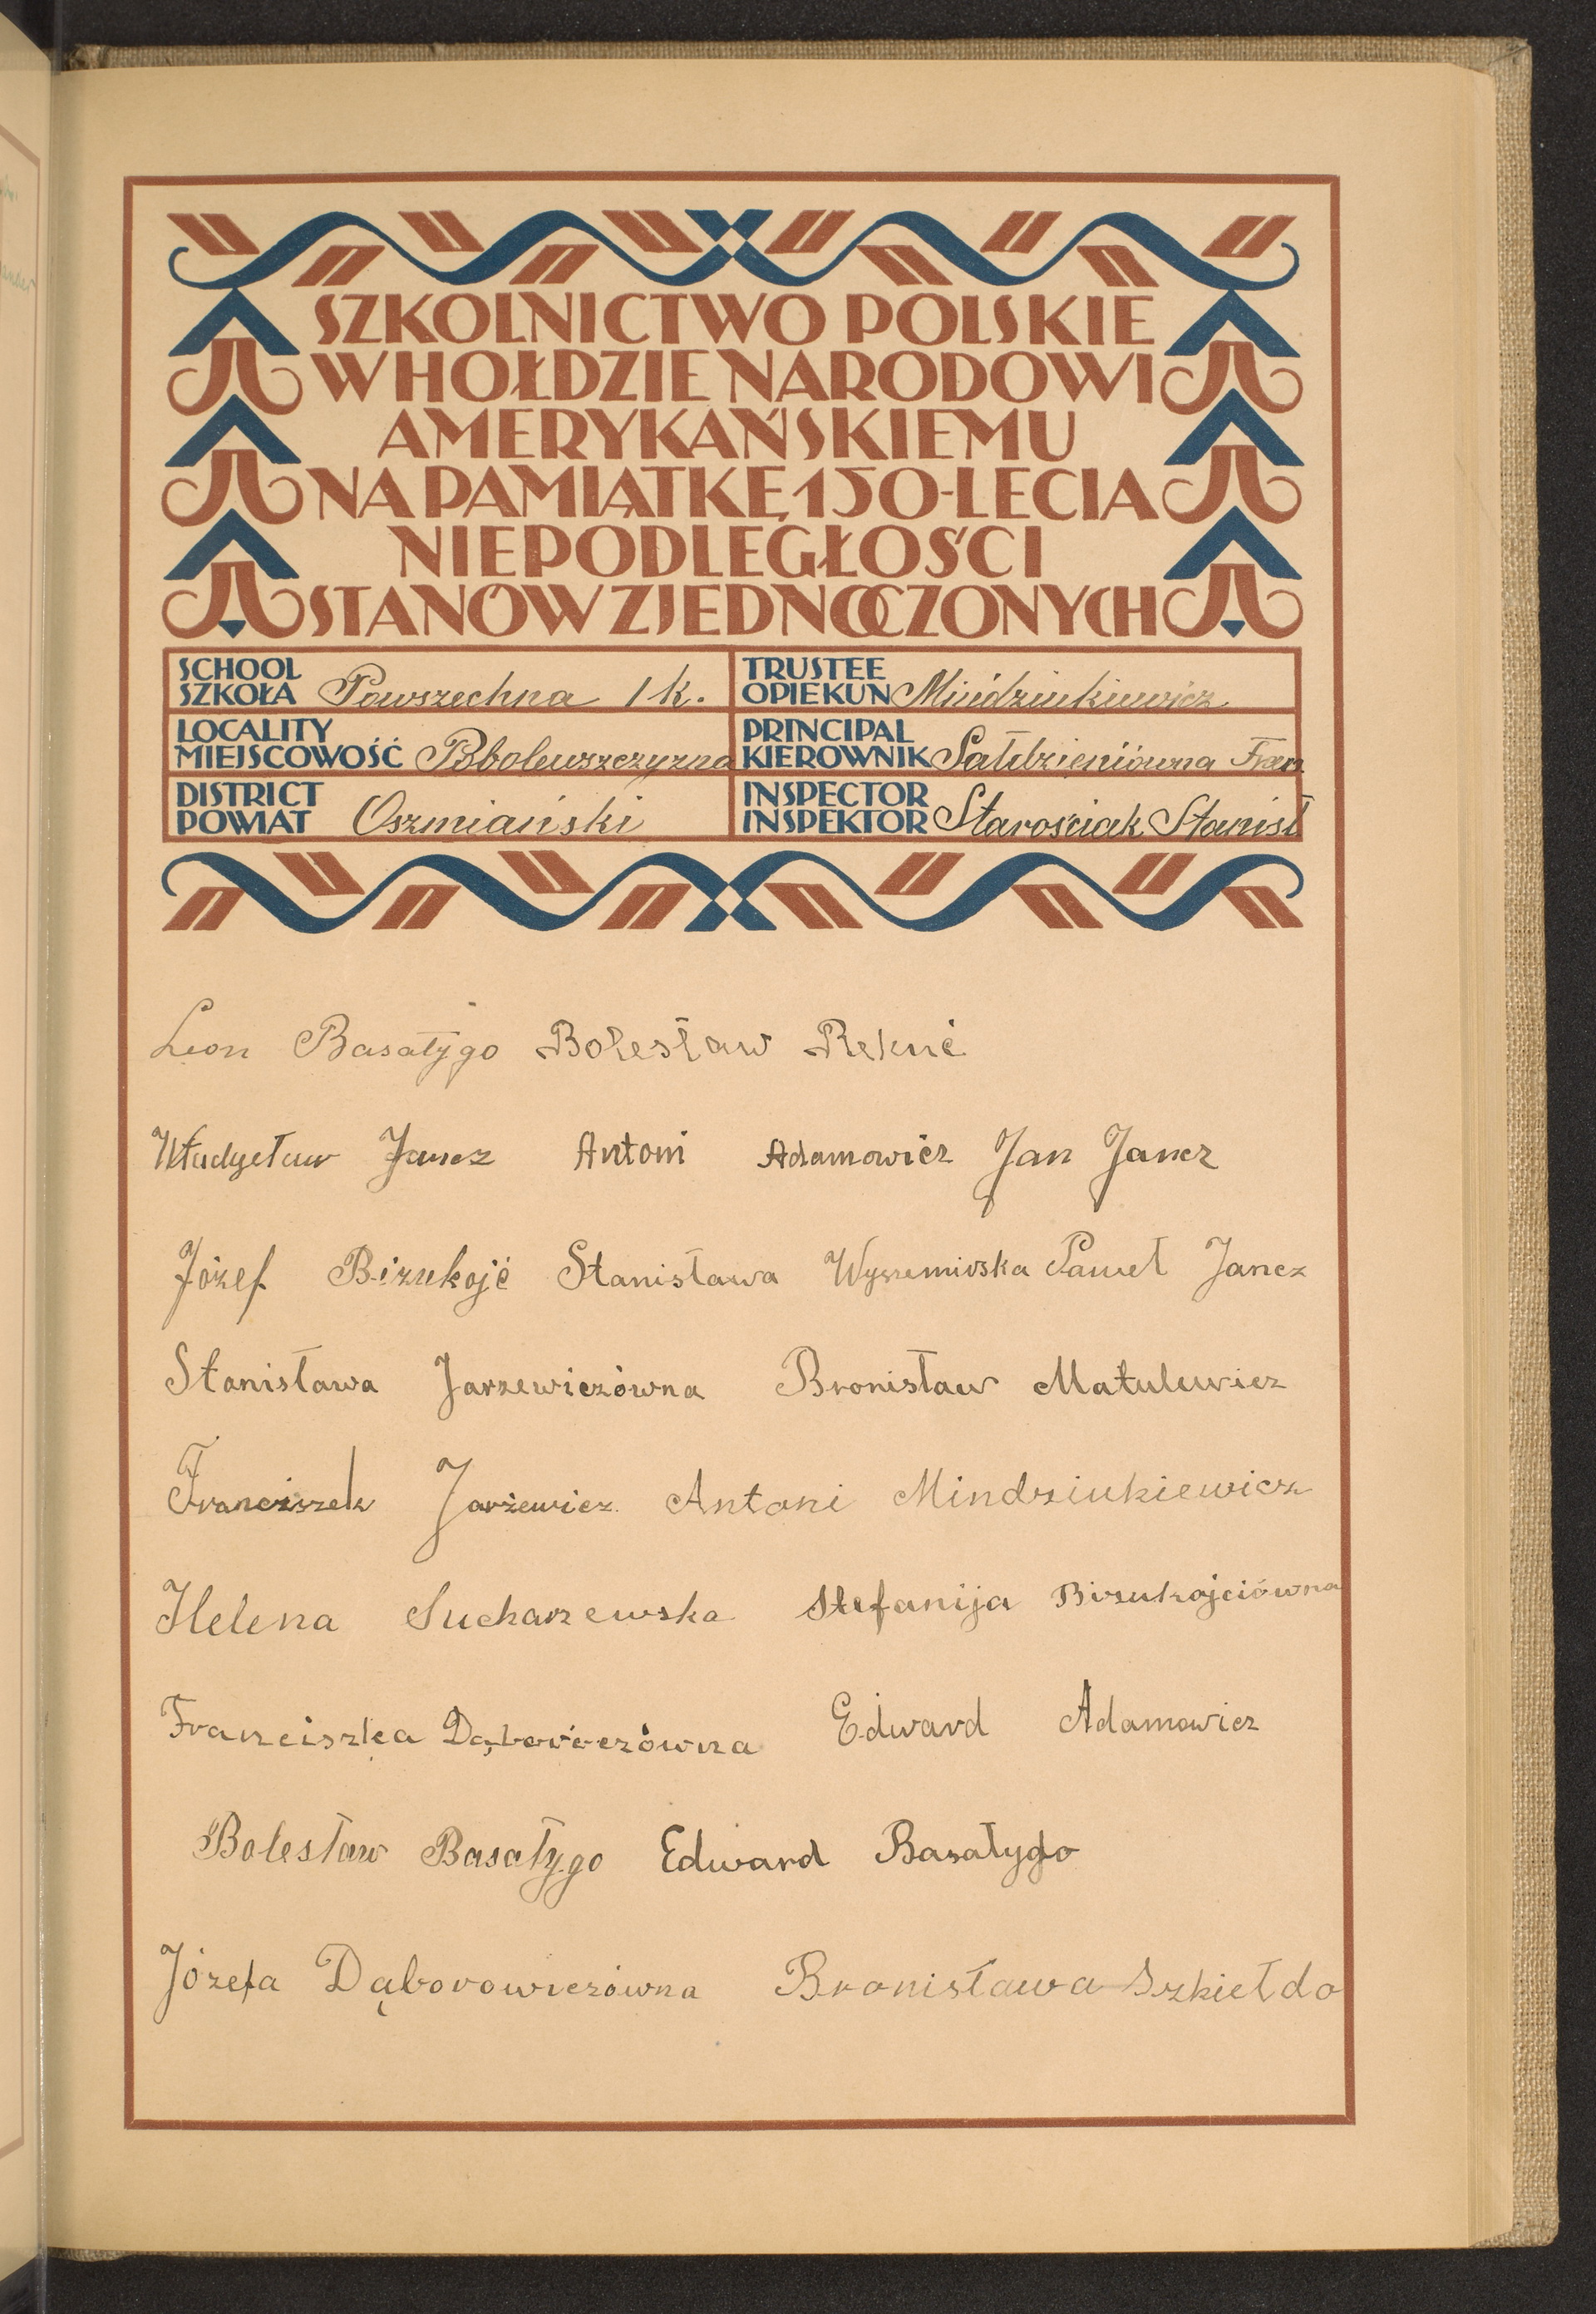 SZKOLNICTWO POLSKIE
W HOŁDZIE NARODOWI
AMERYKAŃSKIEMU
NA PAMIĄTKĘ 150-LECIA
NIEPODLEGŁOŚCI
STANÓW ZJEDNOCZONYCH
SCHOOL
SZKOŁA Powszechna 1 k.
TRUSTEE
OPIEKUN Mindziukiewicz
LOCALITY
MIEJSCOWOŚĆ
PRINCIPAL
KIEROWNIK Sałdzieniówna Fran
DISTRICT
POWIAT Oszmiański
INSPECTOR
INSPEKTOR Starościak Stanisł
Leon Basałygo Bolesław Rekuć
Władysław Jancz Antoni Adamowicz Jan Jancz
Józef Bizukojć Stanisława Paweł Jancz
Stanisława Jarzewiczówna Bronisław Matulewicz
Franciszek Jarzewicz Antoni Mindziukiewicz
Helena Sucharzewska Stefanija Bizukojciówna
Franciszka Edward Adamowicz
Bolesław Basałygo Edward Basałygo
Józefa Dąborowiczówna Bronisława Szkiełdo